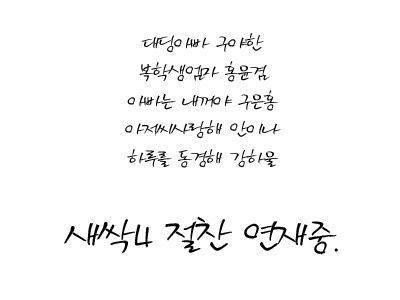 대딩아빠 구야한
복학생엄마 홍윤겸
아빠는 내꺼야 구은홍
아저씨사랑해 안이나
하루를 동경해 강하울
새싹4 절찬 연재중.